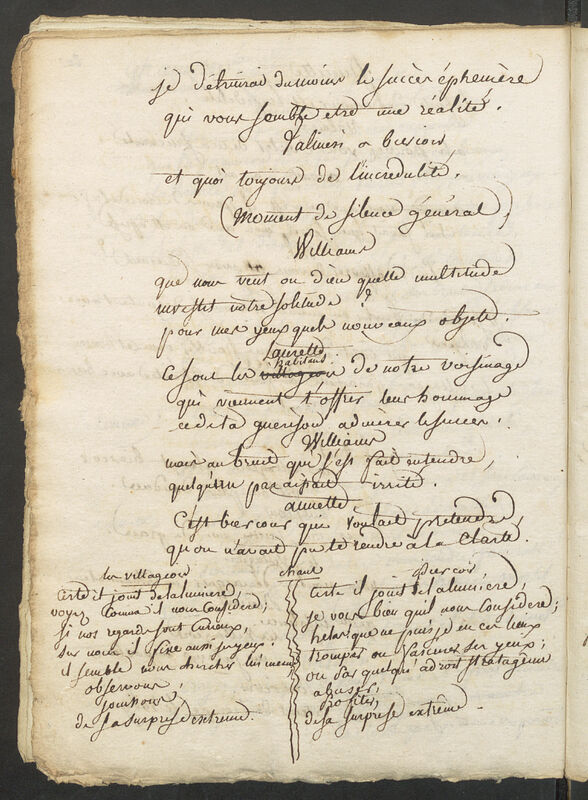 je détruirai du moins le succès éphemère
qui vous semble etre une réalité.
Valmon a bescoir,
et quoi toujours de l'incredulité.
(Moment de silence général)
Williams
que nous veut on dieu quelle multitude
investit notre solitude ?
pour mes yeux quels nouveaux objets.
Laurette
ce sont les villageois habitans de notre voisinage
qui viennent t'offrir leur hommage
de ta guerison admirer le succes.
Williams
mais au bruit qui s'est fait entendre,
quelqu'un paraissait irrité.
annette
C'est bescour qui voulait pretendre,
qu'on n'avait pu te rendre à la Clarté.
chant
les villageois
certe il jouit de la lumiere,
voyez comme il nous considere;
si nos regards sont curieux,
sur nous il fixe aussi ses yeux.
il semble nous chercher lui meme
observons,
jouissons
de sa surprise extreme.
bescoir
certe il jouit de la lumiere,
je vois bien qu'il nous considere;
helas que ne puis-je en ces lieux
tromper ou fasciner ses yeux;
ou par quelqu'adroit stratageme
abuser,
profiter,
de sa surprise extrême.